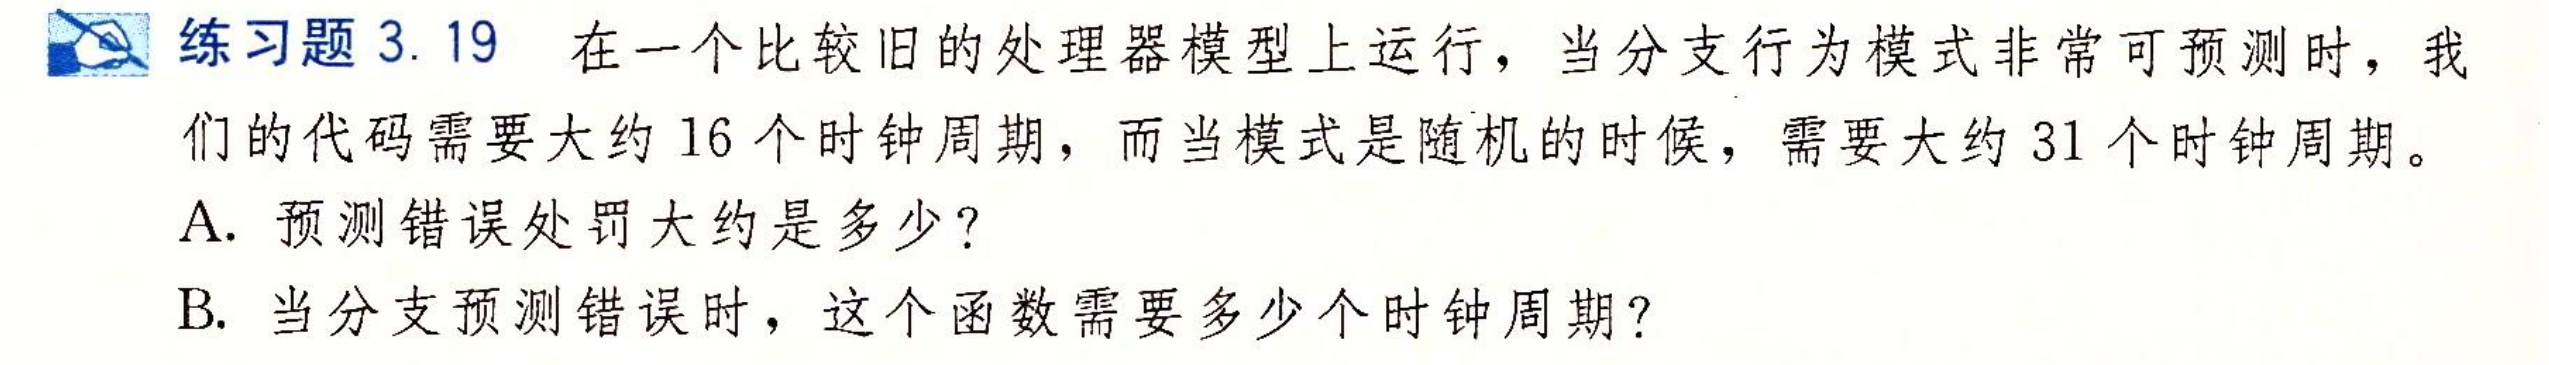 练习题 3.19 在一个比较旧的处理器模型上运行，当分支行为模式非常可预测时，我
们的代码需要大约 16 个时钟周期，而当模式是随机的时候，需要大约 31 个时钟周期。
A. 预测错误处罚大约是多少？
B. 当分支预测错误时，这个函数需要多少个时钟周期？